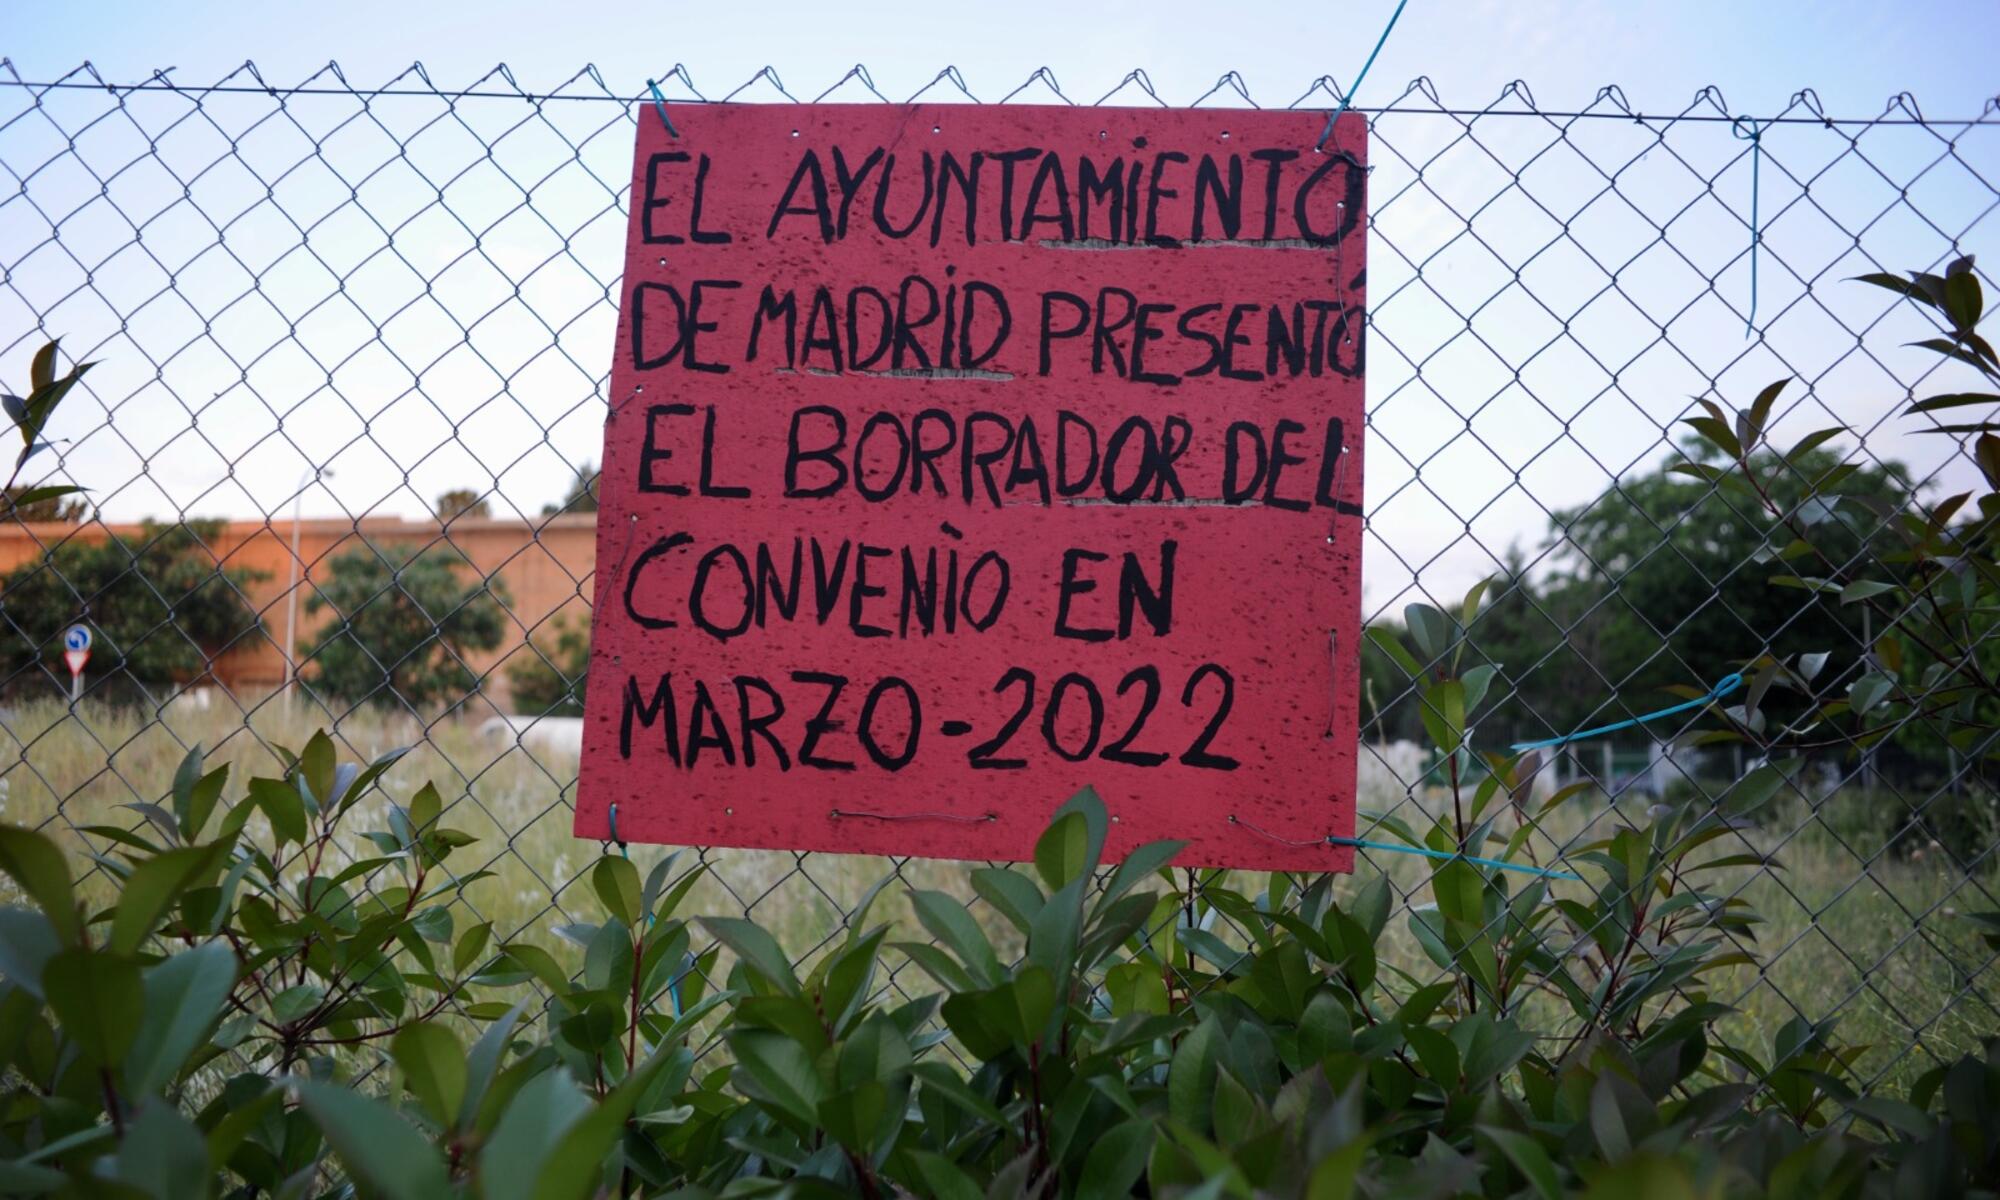 EL AYUNTAMIENTO
DE MADRID PRESENTÓ
EL BORRADOR DEL
CONVENIO EN
MARZO-2022